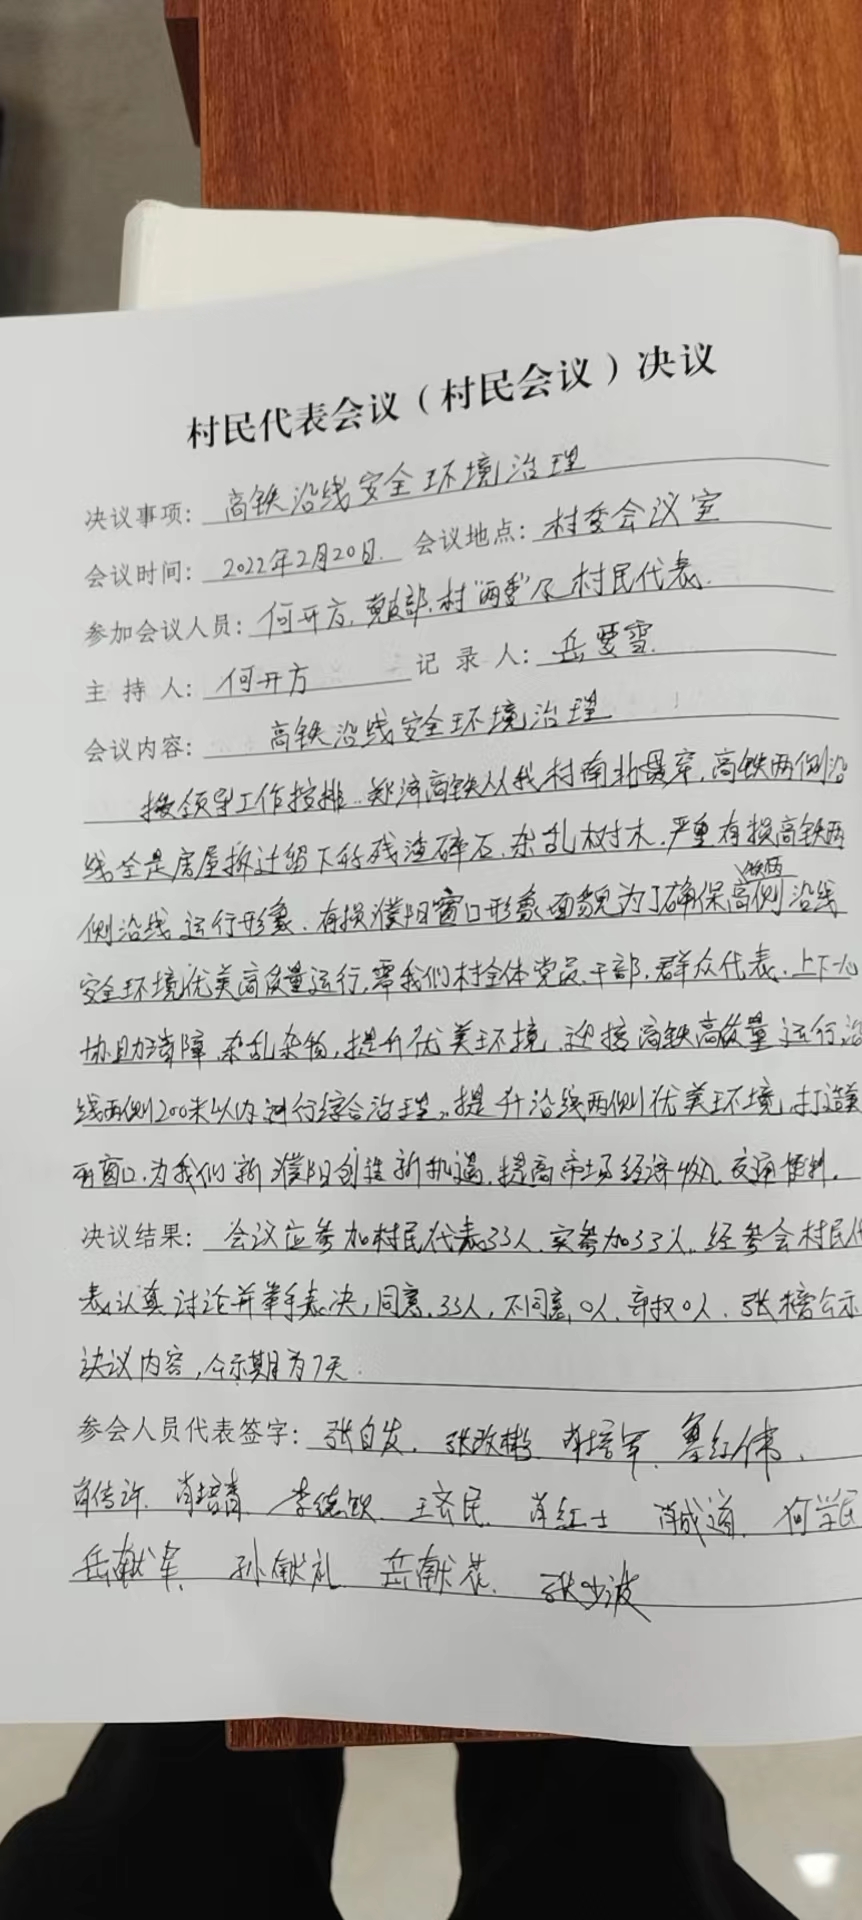 村民代表会议（村民会议）决议
决议事项: 高铁沿线安全环境治理
会议时间: 2022年2月20日. 会议地点: 村委会议室
参加会议人员: 何开方, 党支部, 村"两委"及村民代表.
主持人: 何开方 记录人: 岳要雪.
会议内容: 高铁沿线安全环境治理
按领导工作按排. 郑济高铁从我村南北贯穿, 高铁两侧沿
线全是房屋拆迁留下的残渣碎石, 杂乱树木, 严重有损高铁两
侧沿线运行形象. 有损濮阳窗口形象面貌为了确保高铁两侧沿线
安全环境优美高质量运行, 需我们村全体党员、干部, 群众代表, 上下一心
协助清障, 杂乱杂物, 提升优美环境, 迎接高铁高质量运行, 沿
线两侧200米以内进行综合治理, 提升沿线两侧优美环境, 打造美
丽窗口, 为我们新濮阳创造新机遇, 提高市场经济收入, 交通便利.
决议结果: 会议应参加村民代表33人, 实参加33人, 经参会村民代
表认真讨论并举手表决, 同意, 33人, 不同意, 0人, 弃权0人. 张榜公示
决议内容, 公示期为7天.
参会人员代表签字: 张自发. 张改 肖培军. 红伟.
肖传许. 肖培青. 李德钦. 王玄民. 肖红士 肖成道. 何学民
岳献军. 孙献礼. 岳献花. 张少波